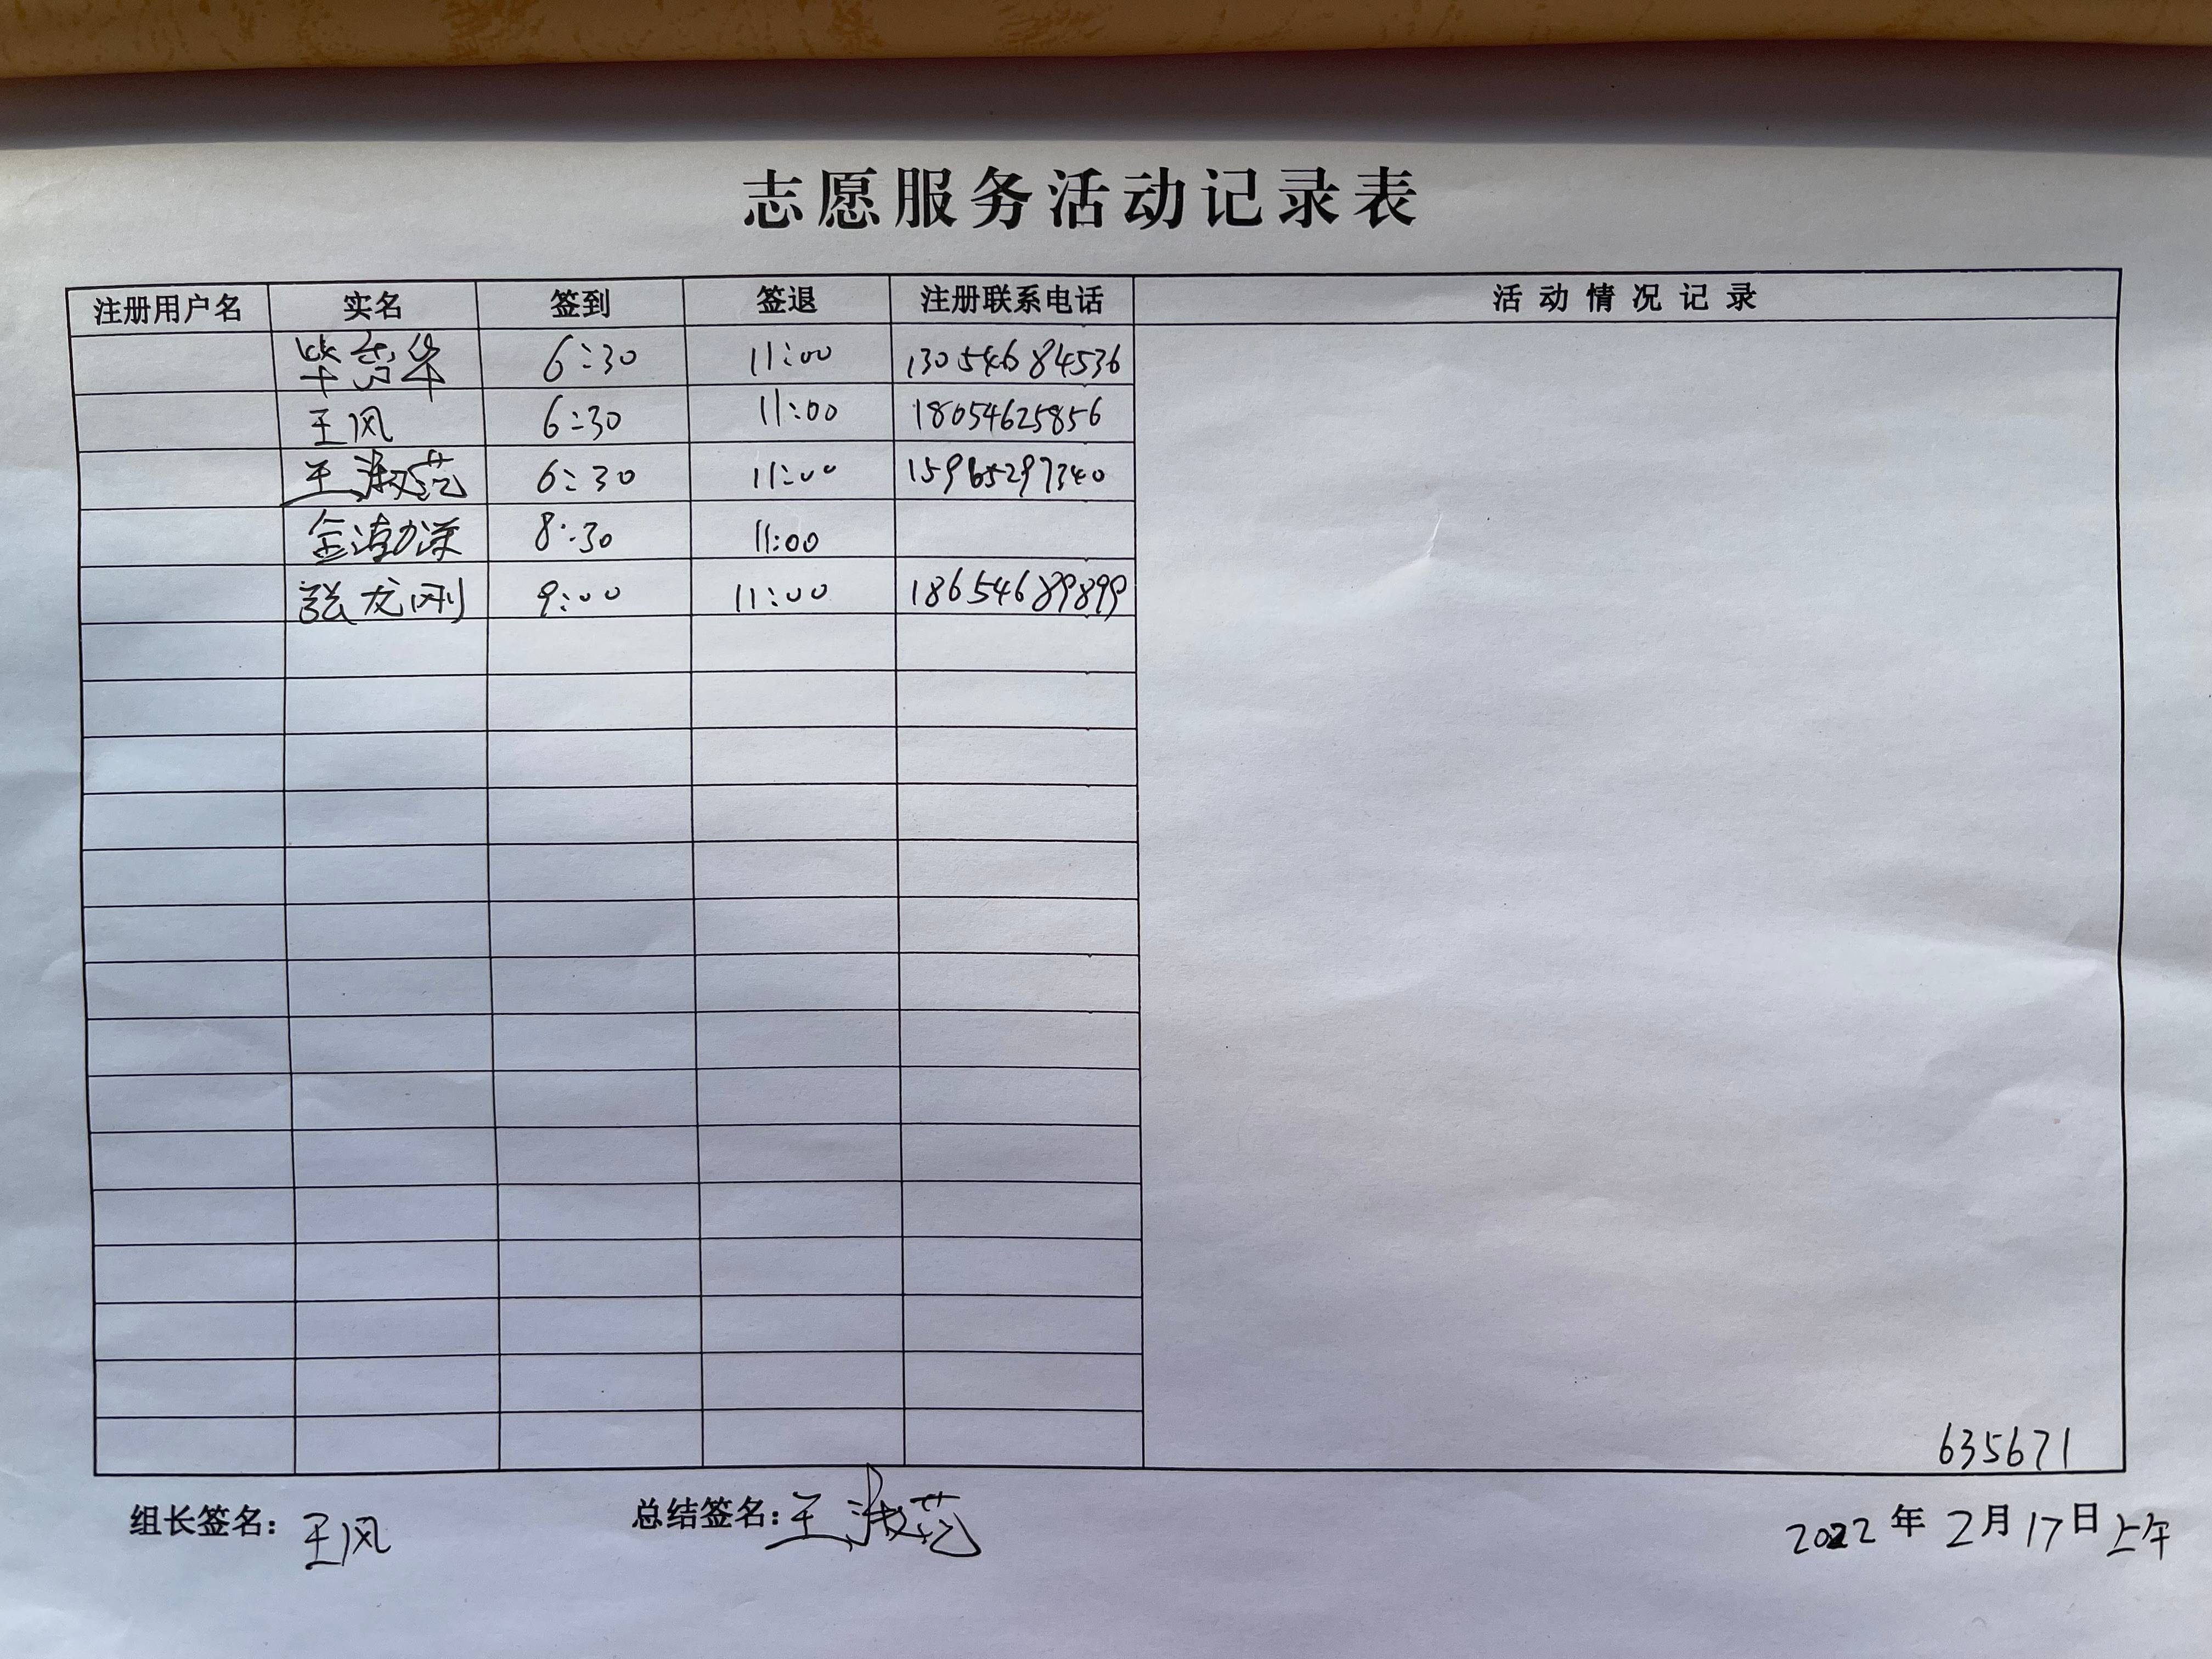 志愿服务活动记录表
注册用户名 实名 签到 签退 注册联系电话 活动情况记录
毕秀华 6:30 11:00 13054684536
王风 6:30 11:00 18054625856
王淑范 6:30 11:00 15965297340
金 8:30 11:00
张龙刚 9:00 11:00 18654689899
635671
组长签名：王风 总结签名：王淑范 2022年2月17日上午